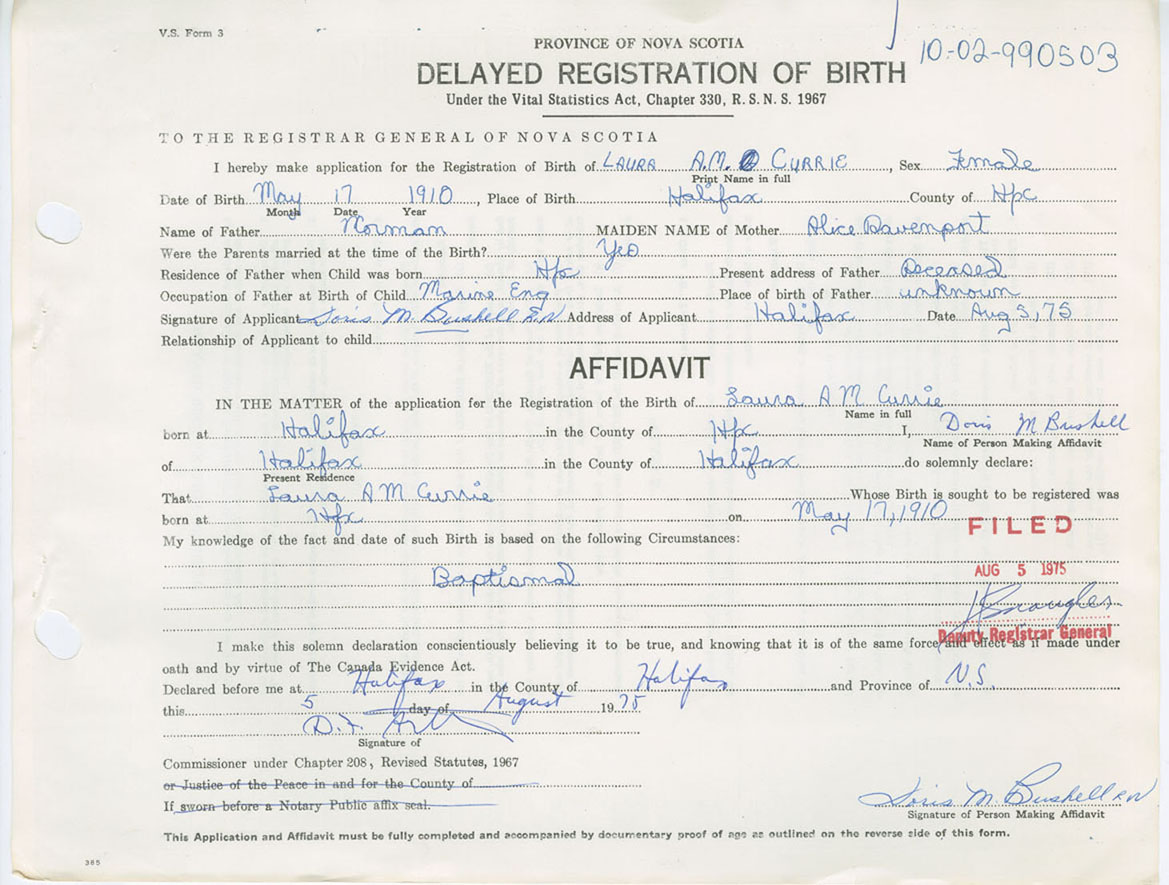 V.S. Form 3
10-02-990503
PROVINCE OF NOVA SCOTIA
DELAYED REGISTRATION OF BIRTH
Under the Vital Statistics Act, Chapter 330, R. S. N. S. 1967
TO THE REGISTRAR GENERAL OF NOVA SCOTIA
I hereby make application for the Registration of Birth of LAURA A.M. CURRIE, Sex Female
Print Name in full
Date of Birth May 17 1910, Place of Birth Halifax County of Hfx
Month Date Year
Name of Father Norman MAIDEN NAME of Mother Alice Davenport
Were the Parents married at the time of the Birth? Yes
Residence of Father when Child was born Hfx Present address of Father Deceased
Occupation of Father at Birth of Child Marine Eng Place of birth of Father unknown
Signature of Applicant Doris M Bushell RN Address of Applicant Halifax Date Aug 5, 75
Relationship of Applicant to child
AFFIDAVIT
IN THE MATTER of the application for the Registration of the Birth of Laura A M Currie
Name in full
born at Halifax in the County of Hfx I, Doris M Bushell
Name of Person Making Affidavit
of Halifax in the County of Halifax do solemnly declare:
Present Residence
That Laura A M Currie Whose Birth is sought to be registered was
born at Hfx on May 17, 1910
FILED
My knowledge of the fact and date of such Birth is based on the following Circumstances:
AUG 5 1975
Baptismal
Deputy Registrar General
I make this solemn declaration conscientiously believing it to be true, and knowing that it is of the same force and effect as if made under
oath and by virtue of The Canada Evidence Act.
Declared before me at Halifax in the County of Halifax and Province of N.S.
this 5 day of August 1975
D. F.
Signature of
Commissioner under Chapter 208, Revised Statutes, 1967
or Justice of the Peace in and for the County of
If sworn before a Notary Public affix seal.
Doris M. Bushell RN
Signature of Person Making Affidavit
This Application and Affidavit must be fully completed and accompanied by documentary proof of age as outlined on the reverse side of this form.
385